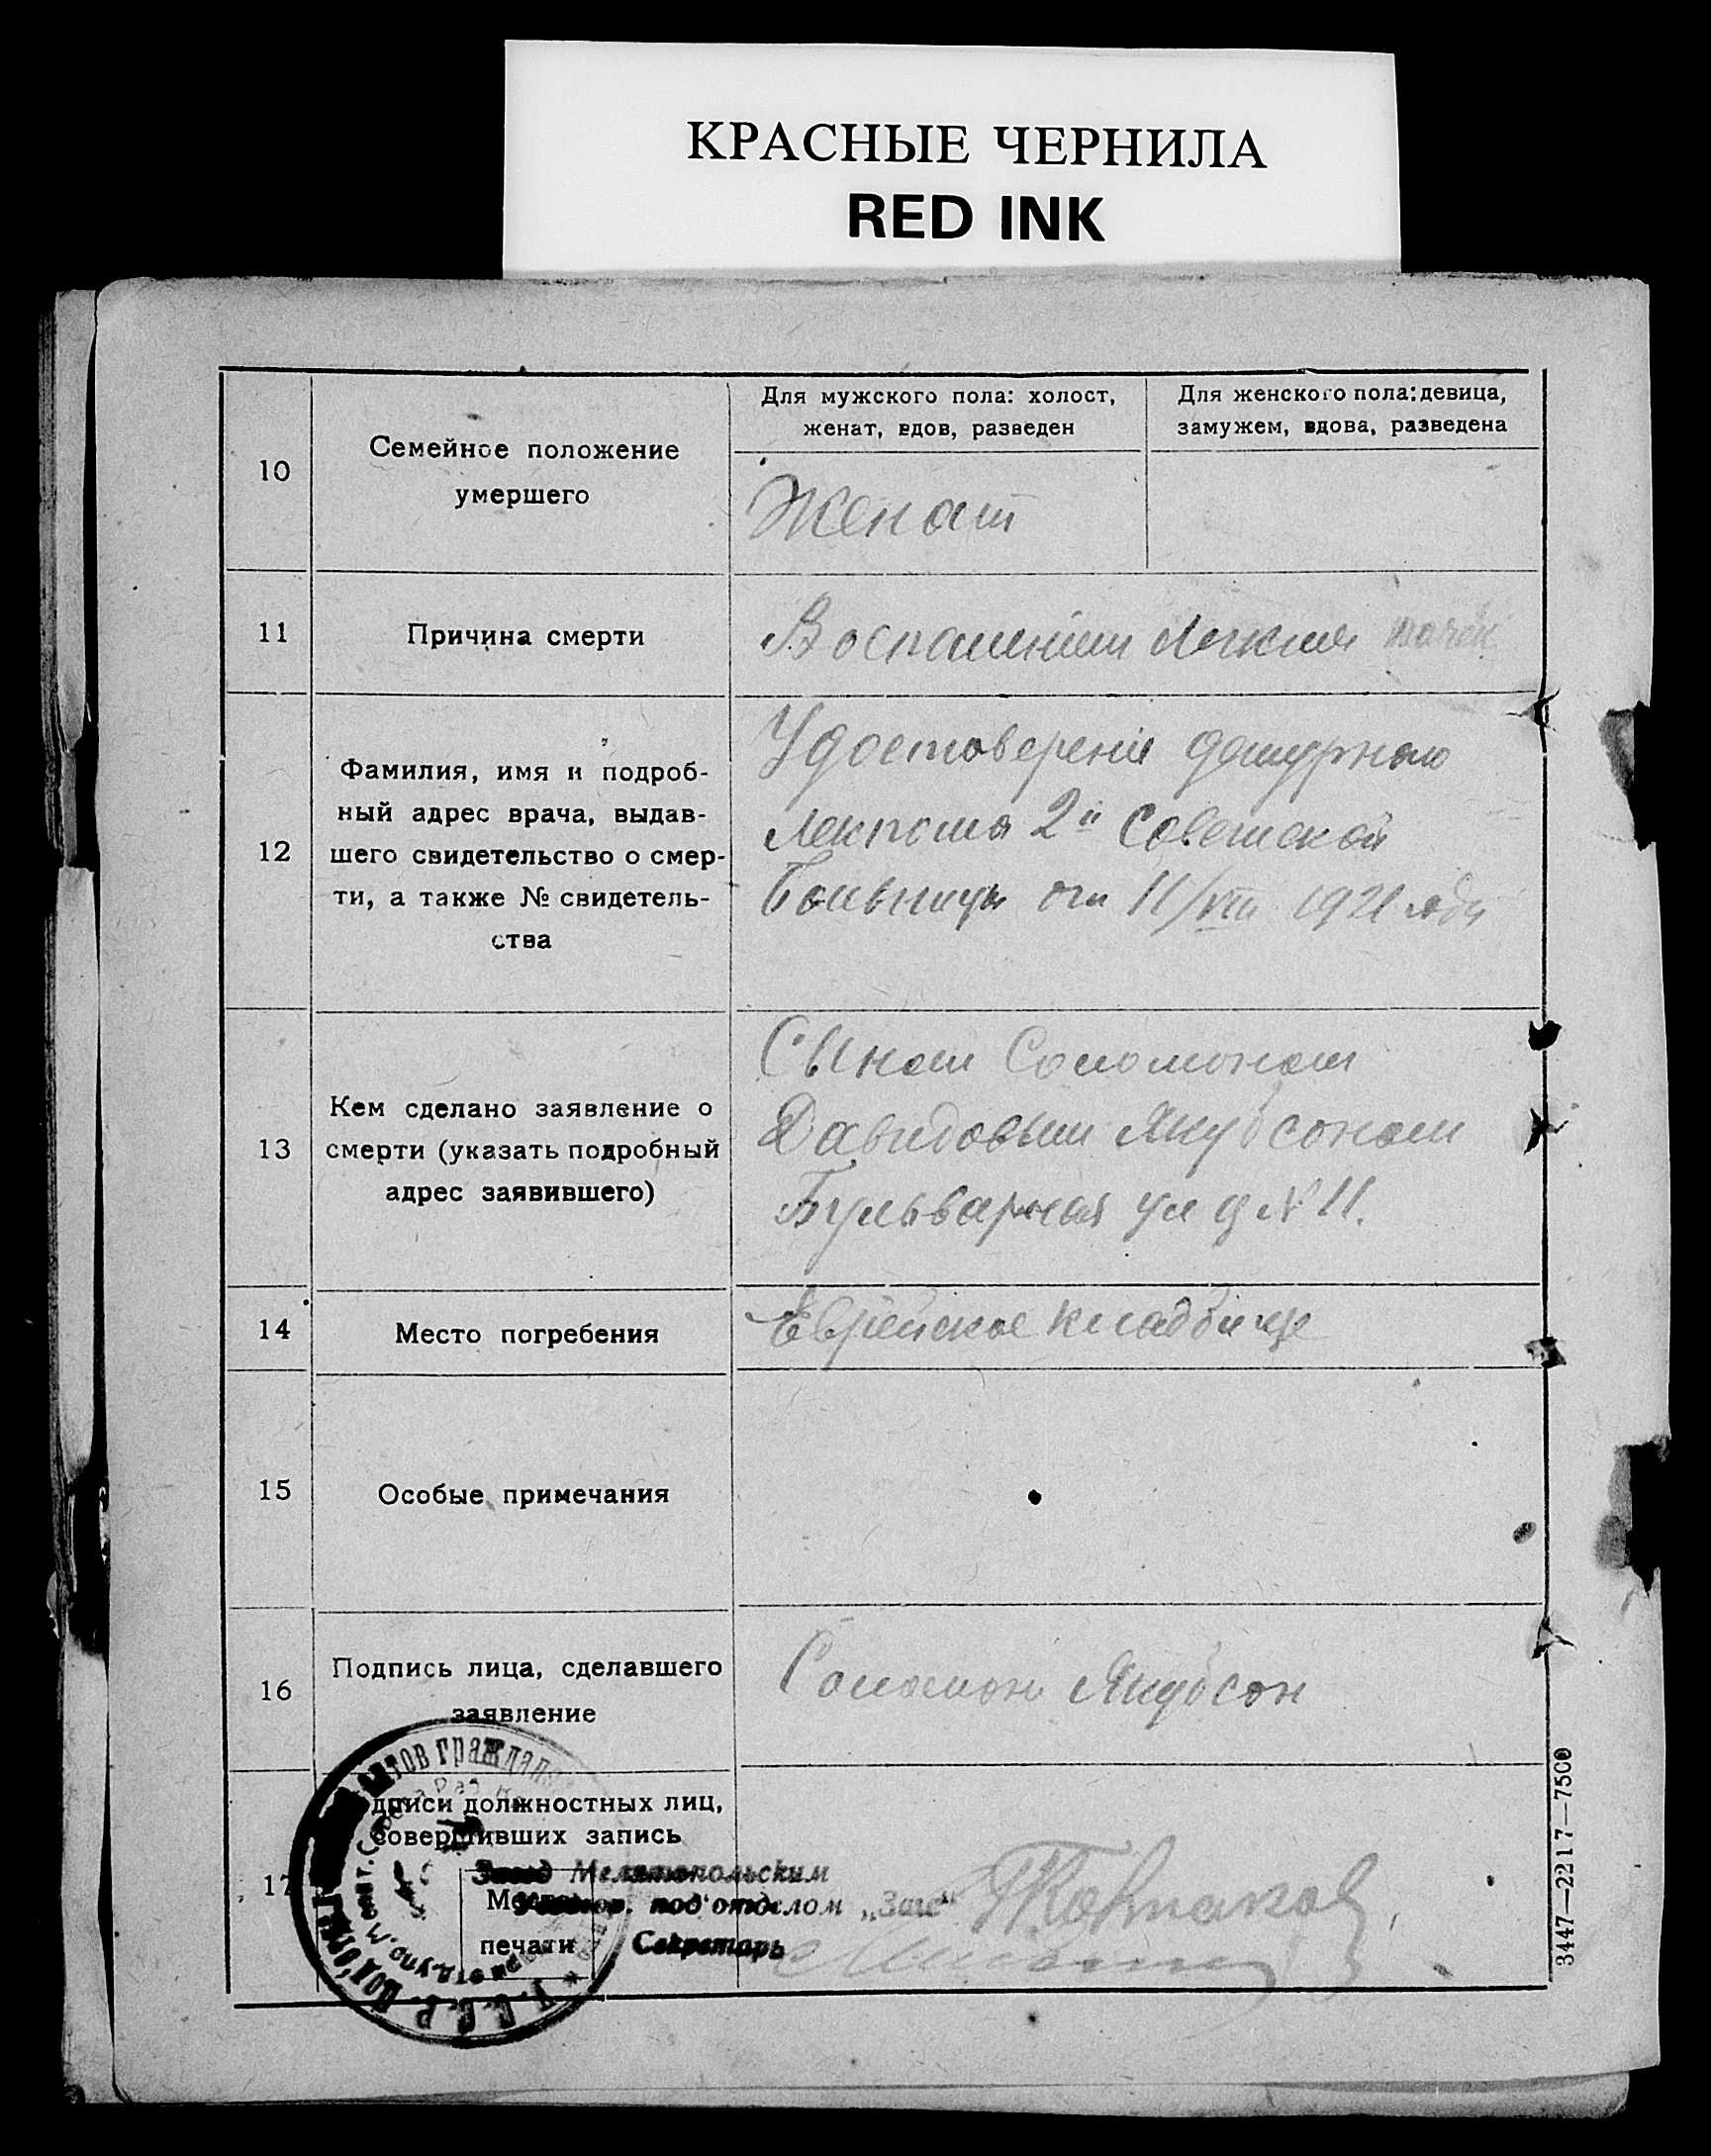 КРАСНЫЕ ЧЕРНИЛА
RED INK
10
Семейное положение
умершего
Для мужского пола: холост,
женат, вдов, разведен
Для женского пола: девица,
замужем, вдова, разведена
Женат
11
Причина смерти
Воспалением легких
12
Фамилия, имя и подроб-
ный адрес врача, выдав-
шего свидетельство о смер-
ти, а также № свидетель-
ства
Удостоверение дежурного
Лекпома 2й Советской
Больницы от 11/VIII 1921 года
13
Кем сделано заявление о
смерти (указать подробный
адрес заявившего)
Сыном Соломоном
Давидовым Якубсоном
Бульварная ул д № 11.
14
Место погребения
Еврейское кладбище
15
Особые примечания
16
Подпись лица, сделавшего
заявление
Соломон Якубсон
17
дписи должностных лиц,
совершивших запись
Завед Мелитопольским
под'отделом „Загс"
Место
печати
Секретарь
У.С.С.Р. Под'отдел актов граждан
3447—2217—7500